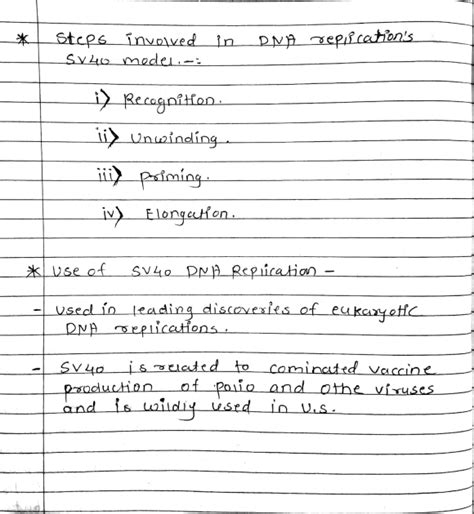 * Steps involved in DNA replication's
SV40 model.-:
i) Recognition.
ii) Unwinding.
iii) priming.
iv) Elongation.
* Use of SV40 DNA Replication -
- used in leading discoveries of eukaryotic
DNA replications.
- SV40 is related to cominated vaccine
production of polio and othe viruses
and is wildly used in U.S.